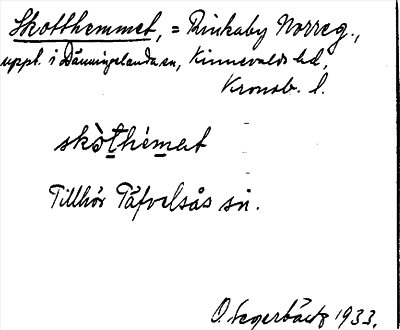 Skotthemmet, = Rinkaby Norreg.,
uppt. i Dänningelanda sn, Kinnevalds hd,
Kronob. l.
skòthémat
Tillhör Täfvelsås sn.
O. Segerbäck 1933.